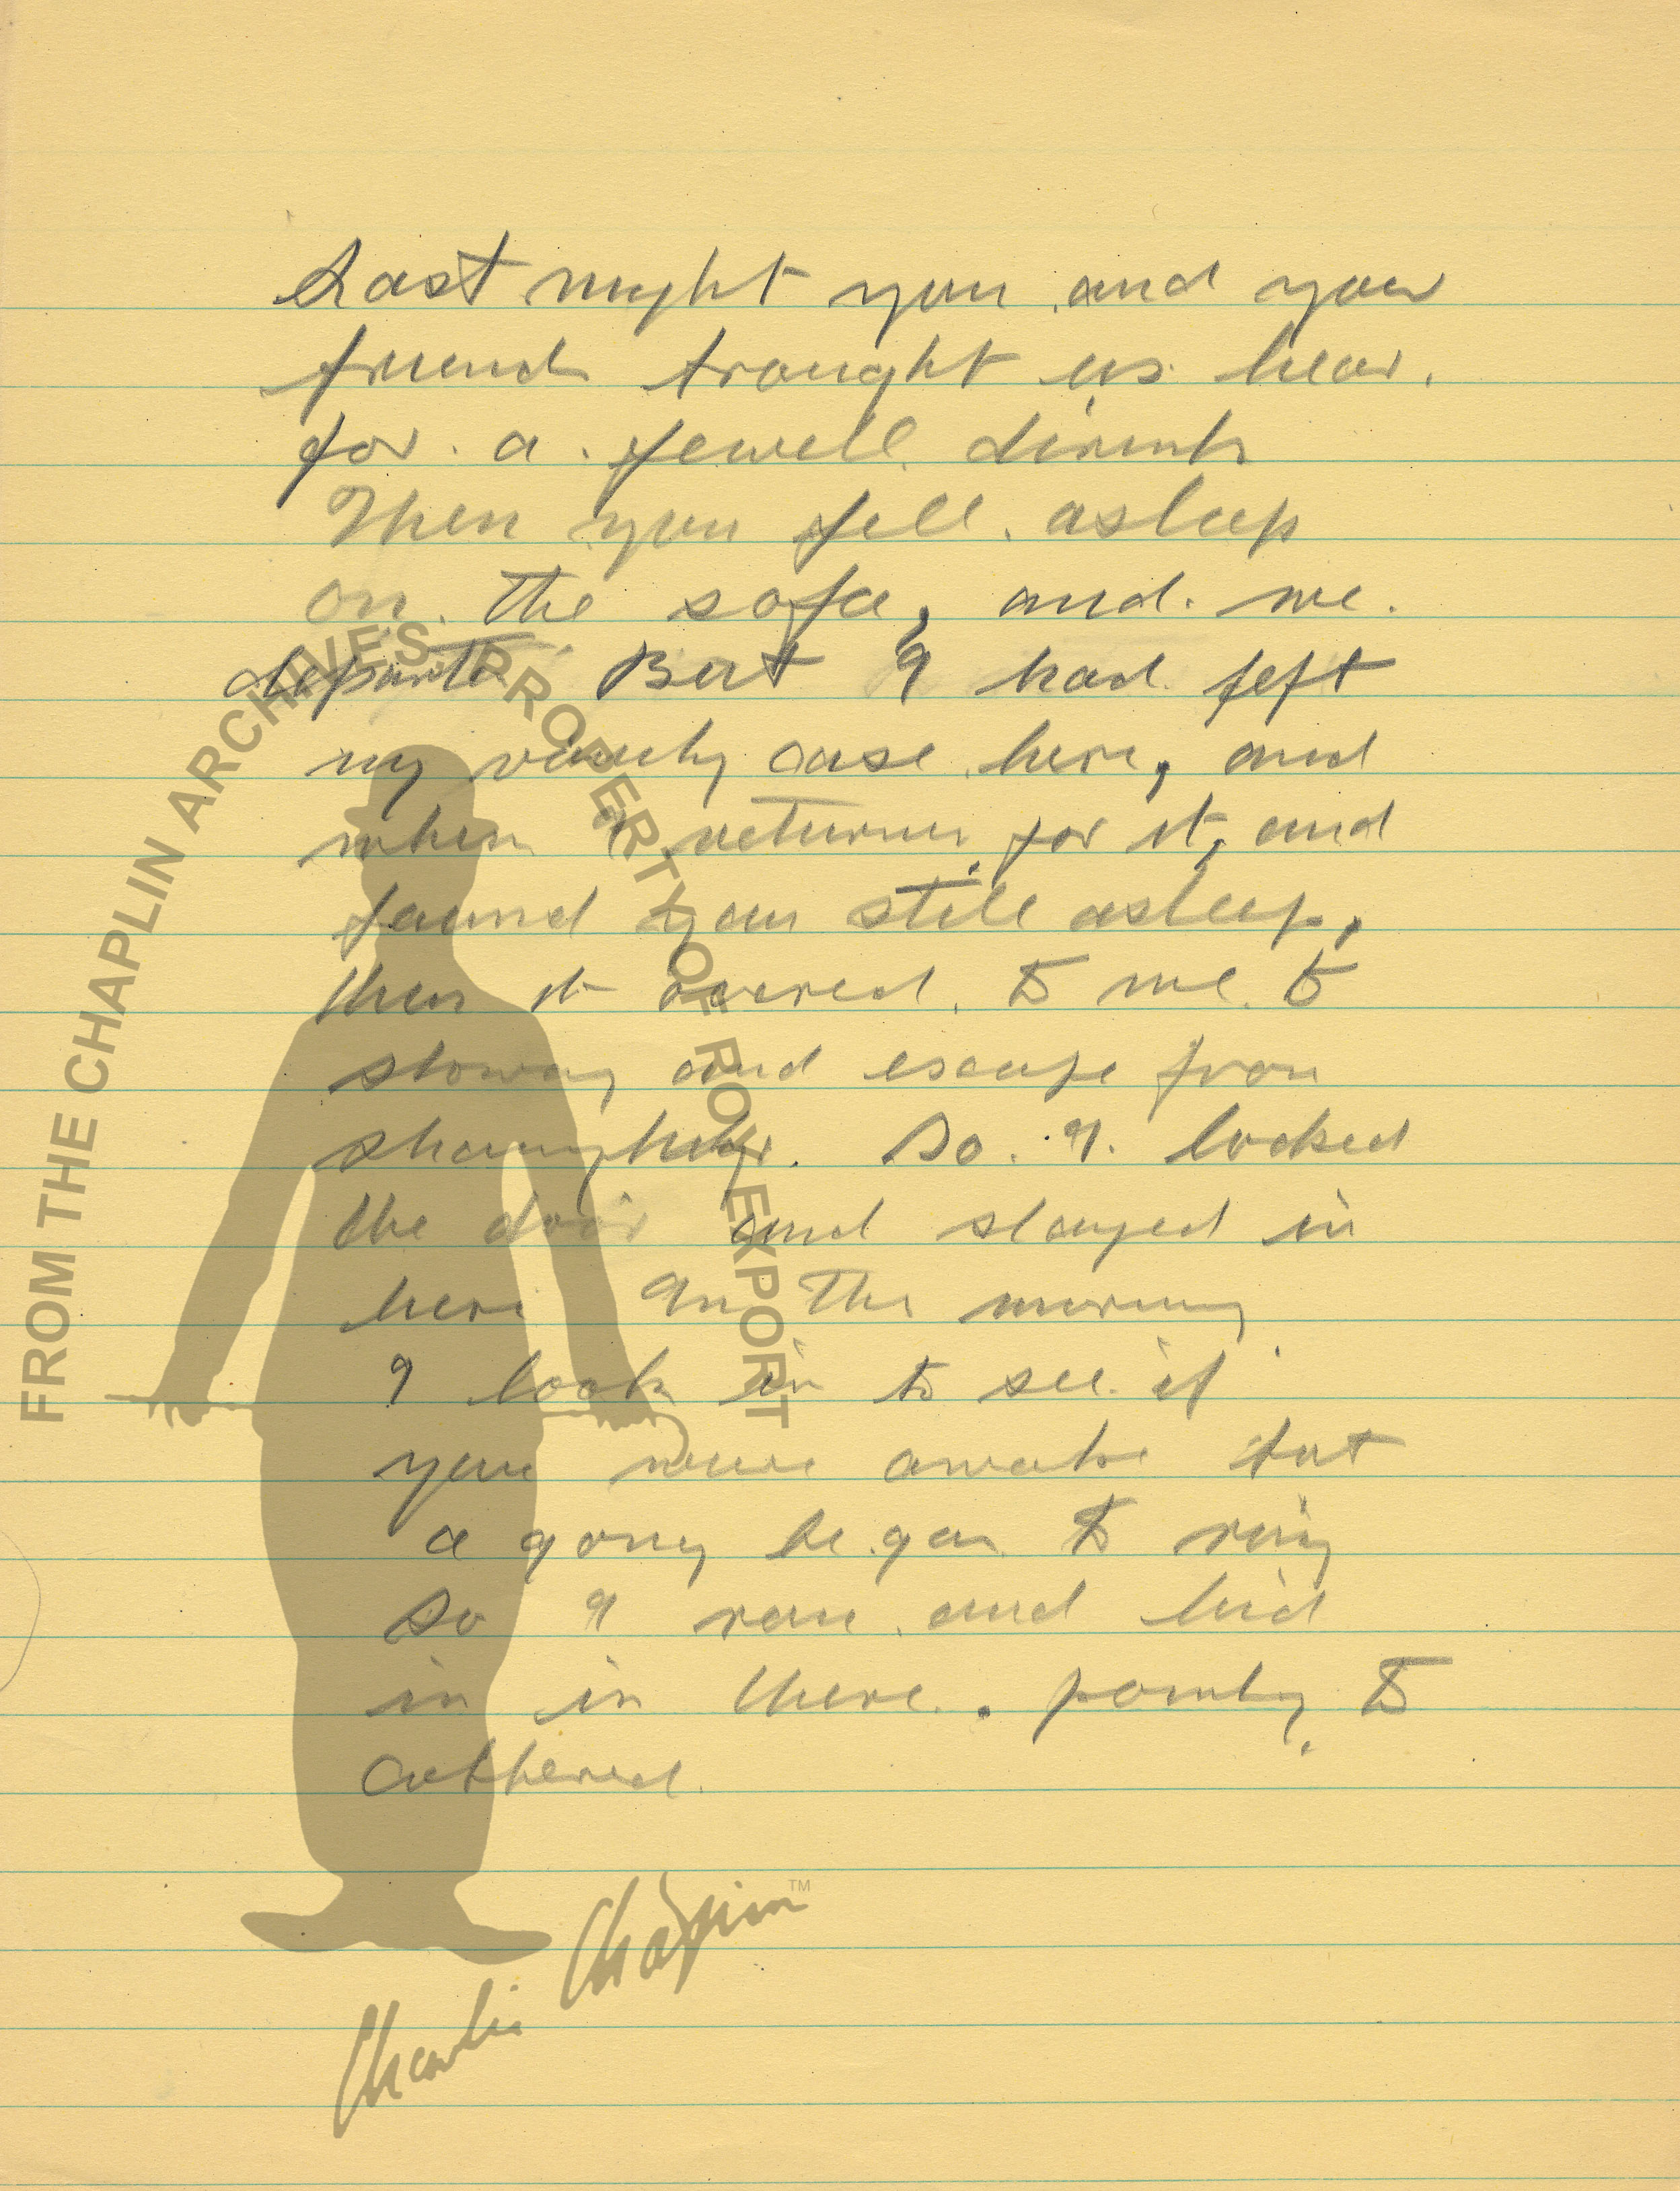 Last night you and your
friends brought us hear.
for a fewell drinks
Then you fell asleep
on the sofa, and we.
departe But I had left
my vanity case here, and
when I returned for it, and
found you still asleep,
then it occured to me to
stoway and escape from
shanghai. So I locked
the door and stayed in
here In the morning
I look in to see if
you were awake but
a gong began to ring
so I ran and hid
in in there.
FROM THE CHAPLIN ARCHIVES. PROPERTY OF ROY EXPORT
Charlie Chaplin™